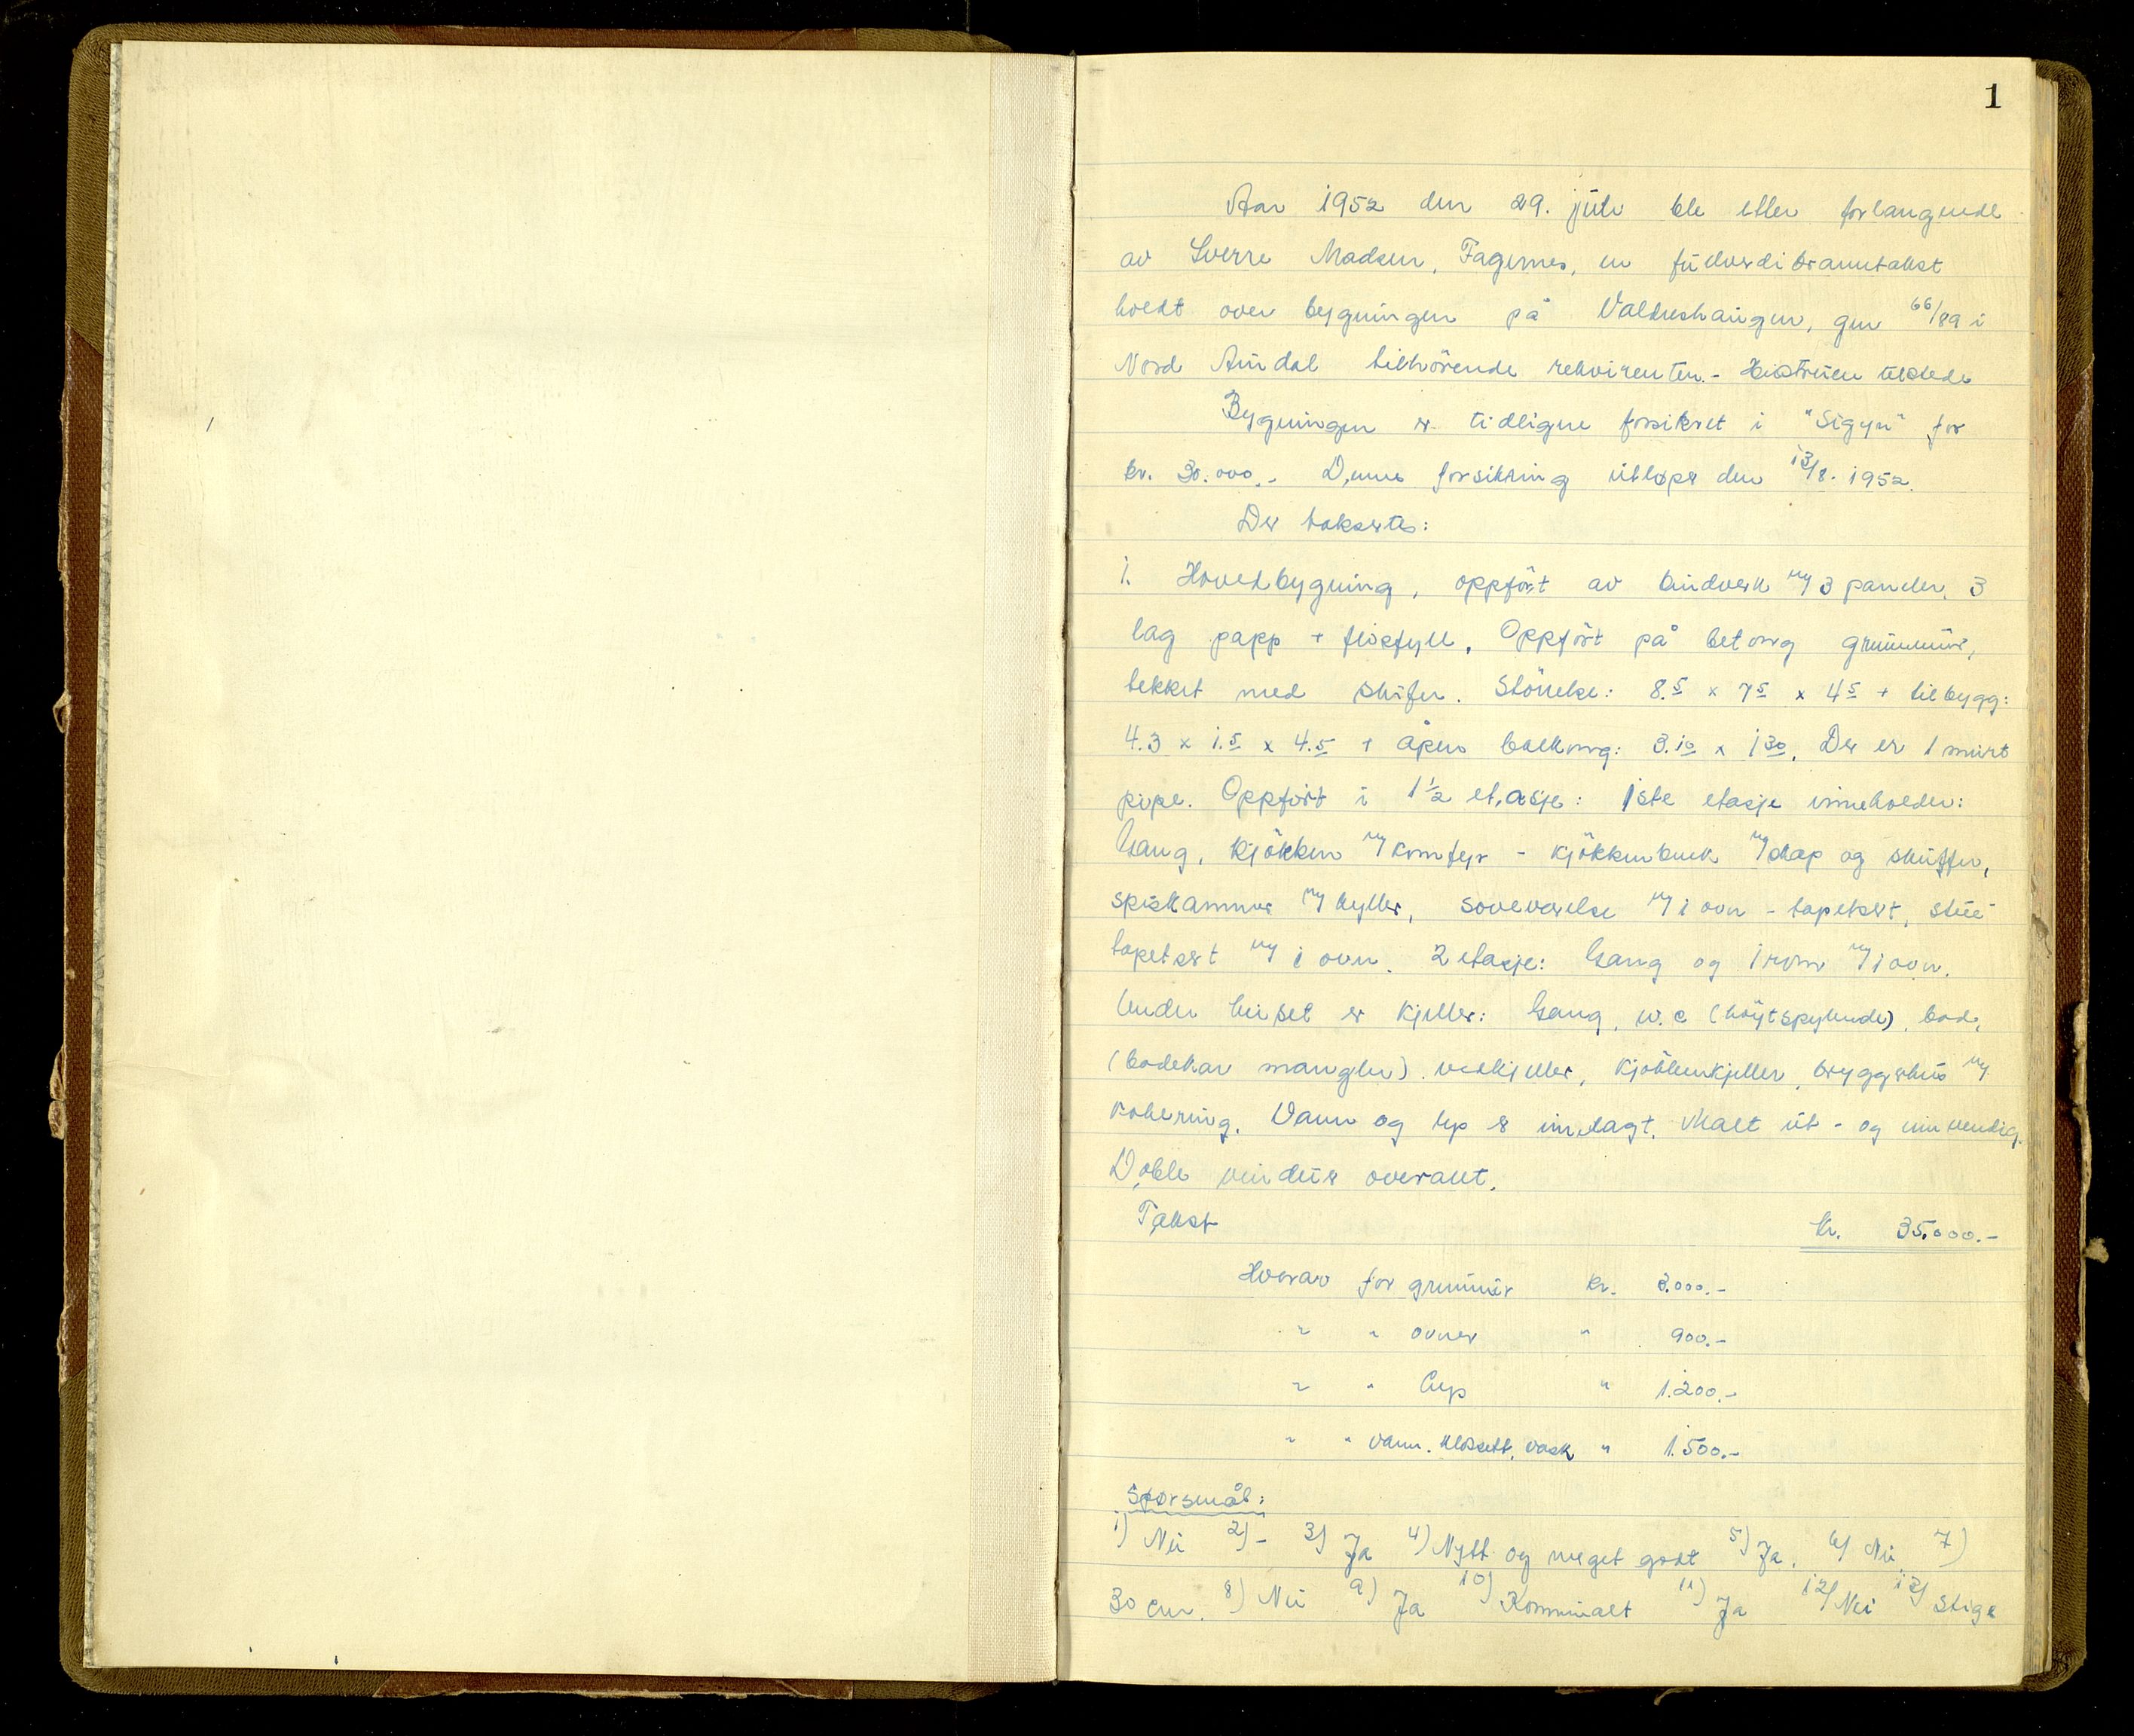 1
Aar 1952 den 29. juli ble etter forlangende
av Sverre Madsen, Fagernes, en fullverdibranntakst
holdt over bygningen på Valdreshaugen, gnr 66/89 i
Nord Aurdal tilhörende rekvirenten. - Hustruen tilstede
Bygningen er tidligere forsikret i "Sigyn" for
kr. 30.000.- Denne forsikring utløper den 13/8. 1952.
Der taksertes:
1. Hovedbygning, oppfört av bindverk m/ 3 paneler, 3
lag papp + flisfyll. Oppfört på betong grunnmur,
tekket med skifer. Störrelse: 8.5 x 7 5 x 4 5 + tilbygg:
4.3 x 1.5 x 4.5 + åpen balkong: 3.10 x 1 30. Der er 1 murt
pipe. Oppfört i 1 1/2 etasje: 1ste etasje inneholder:
Gang, kjökken m/ komfyr - kjökkenbenk m/ skap og skuffer,
spiskammer m/ hyller, soveværelse m/ 1 ovn - tapetsert, stue
tapetsert m/ 1 ovn. 2 etasje: Gang og 1 rom m/ 1 ovn.
Under huset er kjeller: Gang, w.c (höytspylende), bad,
(badekar mangler). vedkjeller, kjökkenkjeller, bryggerhus m/
Vann og lys er innlagt. Malt ut - og innvendig.
Doble vinduer overalt.
Takst kr. 35.000.-
Hverav for grunnmur kr. 3.000.-
" " ovner " 900.-
" " Lys " 1.200.-
" " vann. klosett, vask " 1.500.-
Spørsmål:
1) Nei 2) - 3) Ja 4) Nytt og meget godt 5) Ja. 6) Nei 7)
30 cm. 8) Nei 9) Ja 10) Kommunalt 11) Ja 12) Nei 13) Stige